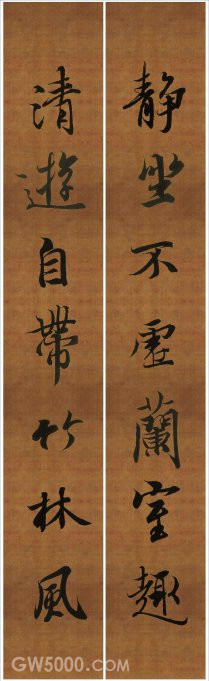 靜坐不虛蘭室趣
清遊自帶竹林風
GW5000.COM